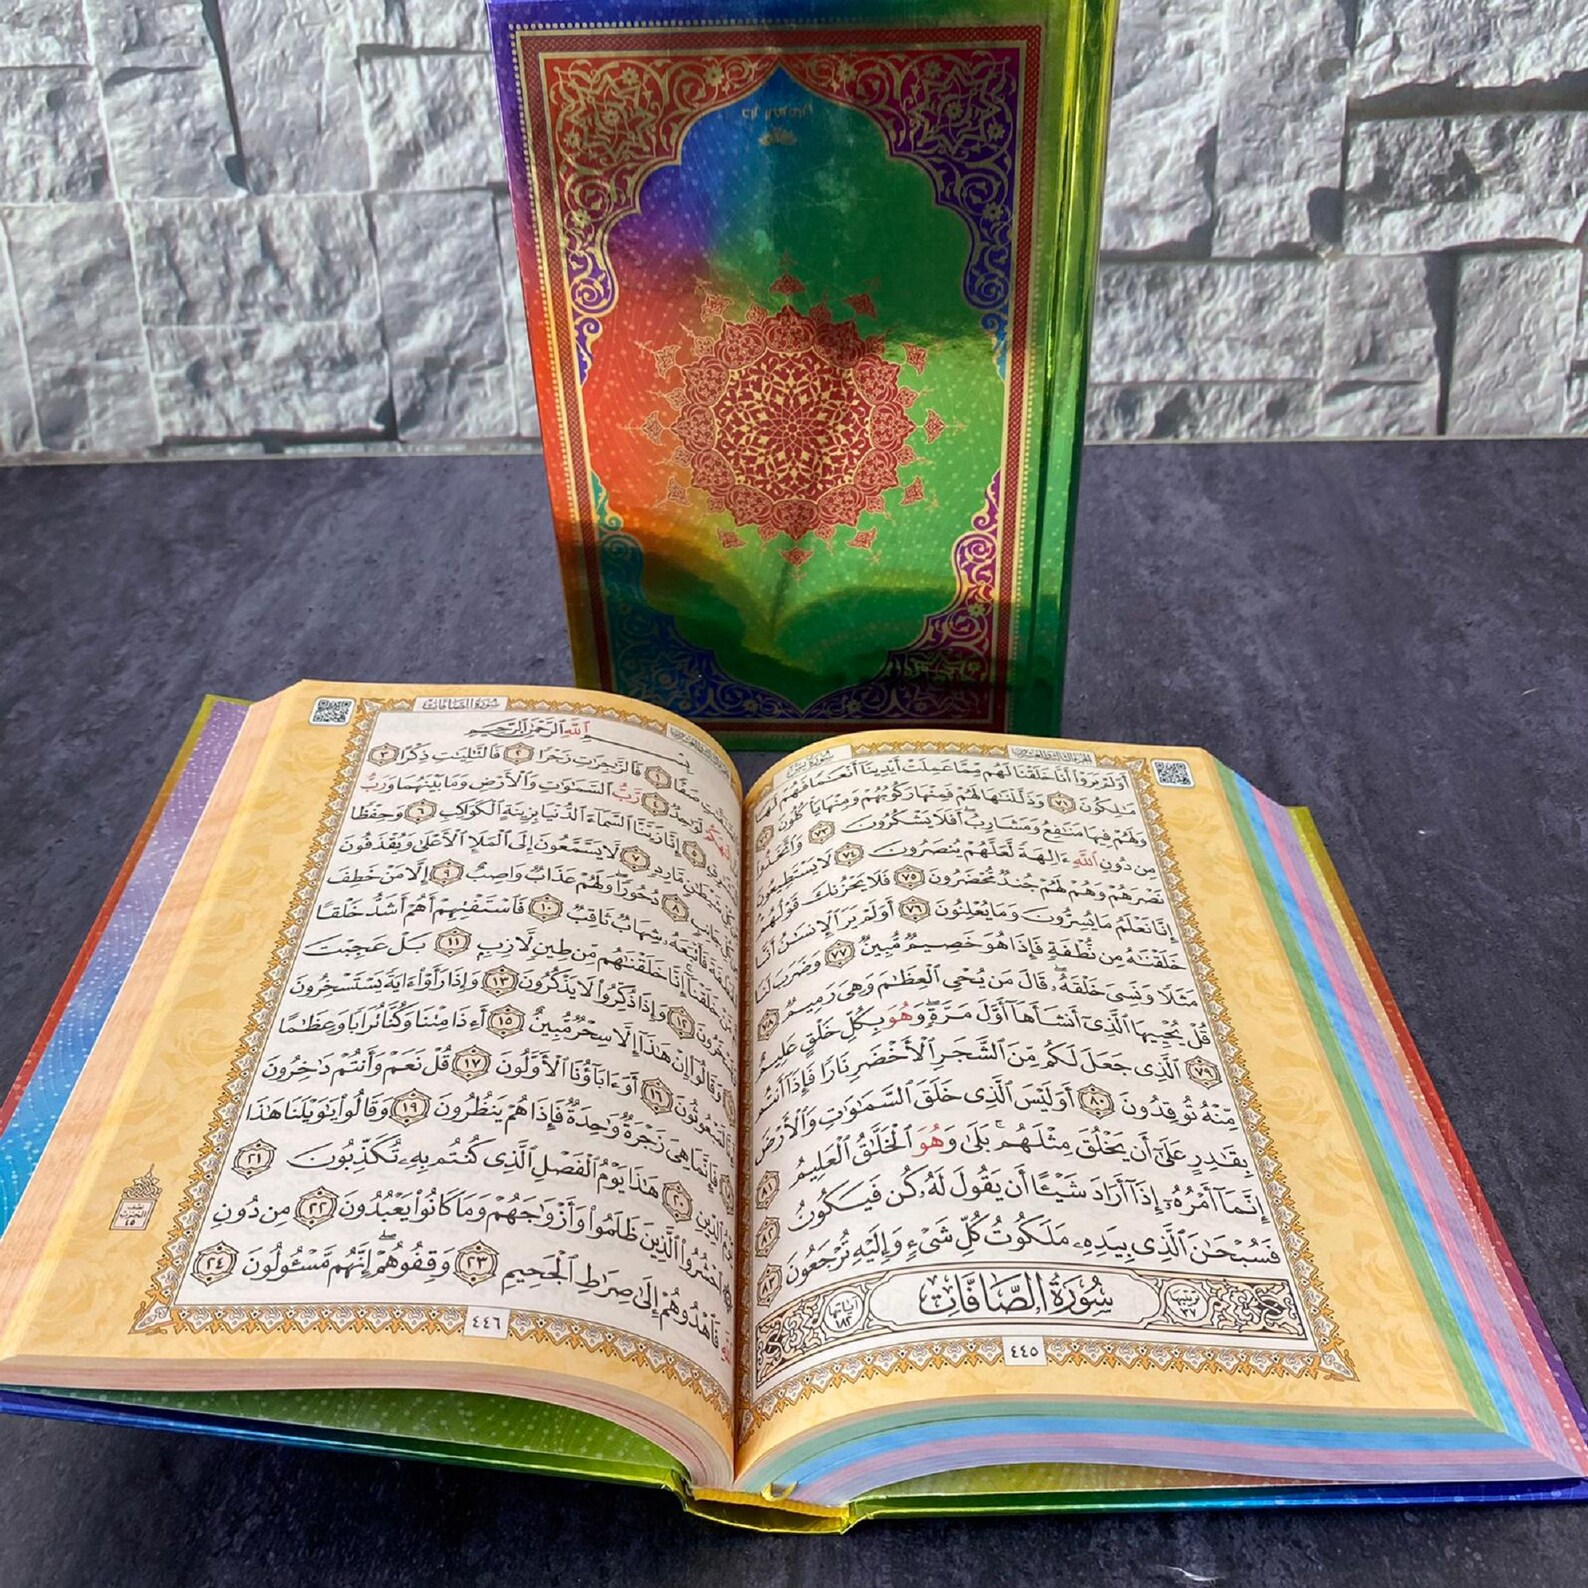 سُورَةُ يسٓ الجزء الثالث والعشرون
أَوَلَمْ يَرَوْا۟ أَنَّا خَلَقْنَا لَهُم مِّمَّا عَمِلَتْ أَيْدِينَآ أَنْعَـٰمًا فَهُمْ لَهَا
مَـٰلِكُونَ ٧١ وَذَلَّلْنَـٰهَا لَهُمْ فَمِنْهَا رَكُوبُهُمْ وَمِنْهَا يَأْكُلُونَ ٧٢
وَلَهُمْ فِيهَا مَنَـٰفِعُ وَمَشَارِبُ ۖ أَفَلَا يَشْكُرُونَ ٧٣ وَٱتَّخَذُوا۟
مِن دُونِ ٱللَّهِ ءَالِهَةً لَّعَلَّهُمْ يُنصَرُونَ ٧٤ لَا يَسْتَطِيعُونَ
نَصْرَهُمْ وَهُمْ لَهُمْ جُندٌ مُّحْضَرُونَ ٧٥ فَلَا يَحْزُنكَ قَوْلُهُمْ ۘ
إِنَّا نَعْلَمُ مَا يُسِرُّونَ وَمَا يُعْلِنُونَ ٧٦ أَوَلَمْ يَرَ ٱلْإِنسَـٰنُ أَنَّا
خَلَقْنَـٰهُ مِن نُّطْفَةٍ فَإِذَا هُوَ خَصِيمٌ مُّبِينٌ ٧٧ وَضَرَبَ لَنَا
مَثَلًا وَنَسِىَ خَلْقَهُۥ ۖ قَالَ مَن يُحْىِ ٱلْعِظَـٰمَ وَهِىَ رَمِيمٌ ٧٨
قُلْ يُحْيِيهَا ٱلَّذِىٓ أَنشَأَهَآ أَوَّلَ مَرَّةٍ ۖ وَهُوَ بِكُلِّ خَلْقٍ عَلِيمٌ
٧٩ ٱلَّذِى جَعَلَ لَكُم مِّنَ ٱلشَّجَرِ ٱلْأَخْضَرِ نَارًا فَإِذَآ أَنتُم
مِّنْهُ تُوقِدُونَ ٨٠ أَوَلَيْسَ ٱلَّذِى خَلَقَ ٱلسَّمَـٰوَٰتِ وَٱلْأَرْضَ
بِقَـٰدِرٍ عَلَىٰٓ أَن يَخْلُقَ مِثْلَهُم ۚ بَلَىٰ وَهُوَ ٱلْخَلَّـٰقُ ٱلْعَلِيمُ ٨١
إِنَّمَآ أَمْرُهُۥٓ إِذَآ أَرَادَ شَيْـًٔا أَن يَقُولَ لَهُۥ كُن فَيَكُونُ ٨٢
فَسُبْحَـٰنَ ٱلَّذِى بِيَدِهِۦ مَلَكُوتُ كُلِّ شَىْءٍ وَإِلَيْهِ تُرْجَعُونَ ٨٣
ترتيبها ٣٧ سُورَةُ الصَّافَّاتِ آياتها ١٨٢
٤٤٥
سُورَةُ الصَّافَّاتِ
بِسْمِ ٱللَّهِ ٱلرَّحْمَـٰنِ ٱلرَّحِيمِ
صَفًّا ١ فَٱلزَّٰجِرَٰتِ زَجْرًا ٢ فَٱلتَّـٰلِيَـٰتِ ذِكْرًا ٣
لَوَٰحِدٌ ٤ رَّبُّ ٱلسَّمَـٰوَٰتِ وَٱلْأَرْضِ وَمَا بَيْنَهُمَا وَرَبُّ
٥ إِنَّا زَيَّنَّا ٱلسَّمَآءَ ٱلدُّنْيَا بِزِينَةٍ ٱلْكَوَاكِبِ ٦ وَحِفْظًا
شَيْطَـٰنٍ مَّارِدٍ ٧ لَّا يَسَّمَّعُونَ إِلَى ٱلْمَلَإِ ٱلْأَعْلَىٰ وَيُقْذَفُونَ
جَانِبٍ ٨ دُحُورًا ۖ وَلَهُمْ عَذَابٌ وَاصِبٌ ٩ إِلَّا مَنْ خَطِفَ
فَأَتْبَعَهُۥ شِهَابٌ ثَاقِبٌ ١٠ فَٱسْتَفْتِهِمْ أَهُمْ أَشَدُّ خَلْقًا
خَلَقْنَآ ۚ إِنَّا خَلَقْنَـٰهُم مِّن طِينٍ لَّازِبٍ ١١ بَلْ عَجِبْتَ
١٢ وَإِذَا ذُكِّرُوا۟ لَا يَذْكُرُونَ ١٣ وَإِذَا رَأَوْا۟ ءَايَةً يَسْتَسْخِرُونَ
وَقَالُوٓا۟ إِنْ هَـٰذَآ إِلَّا سِحْرٌ مُّبِينٌ ١٥ أَءِذَا مِتْنَا وَكُنَّا تُرَابًا وَعِظَـٰمًا
لَمَبْعُوثُونَ ١٦ أَوَءَابَآؤُنَا ٱلْأَوَّلُونَ ١٧ قُلْ نَعَمْ وَأَنتُمْ دَٰخِرُونَ
فَإِنَّمَا هِىَ زَجْرَةٌ وَٰحِدَةٌ فَإِذَا هُمْ يَنظُرُونَ ١٩ وَقَالُوا۟ يَـٰوَيْلَنَا هَـٰذَا
ٱلدِّينِ ٢٠ هَـٰذَا يَوْمُ ٱلْفَصْلِ ٱلَّذِى كُنتُم بِهِۦ تُكَذِّبُونَ ٢١
ٱحْشُرُوا۟ ٱلَّذِينَ ظَلَمُوا۟ وَأَزْوَٰجَهُمْ وَمَا كَانُوا۟ يَعْبُدُونَ ٢٢ مِن دُونِ
فَٱهْدُوهُمْ إِلَىٰ صِرَٰطِ ٱلْجَحِيمِ ٢٣ وَقِفُوهُمْ ۖ إِنَّهُم مَّسْـُٔولُونَ ٢٤
٤٤٦